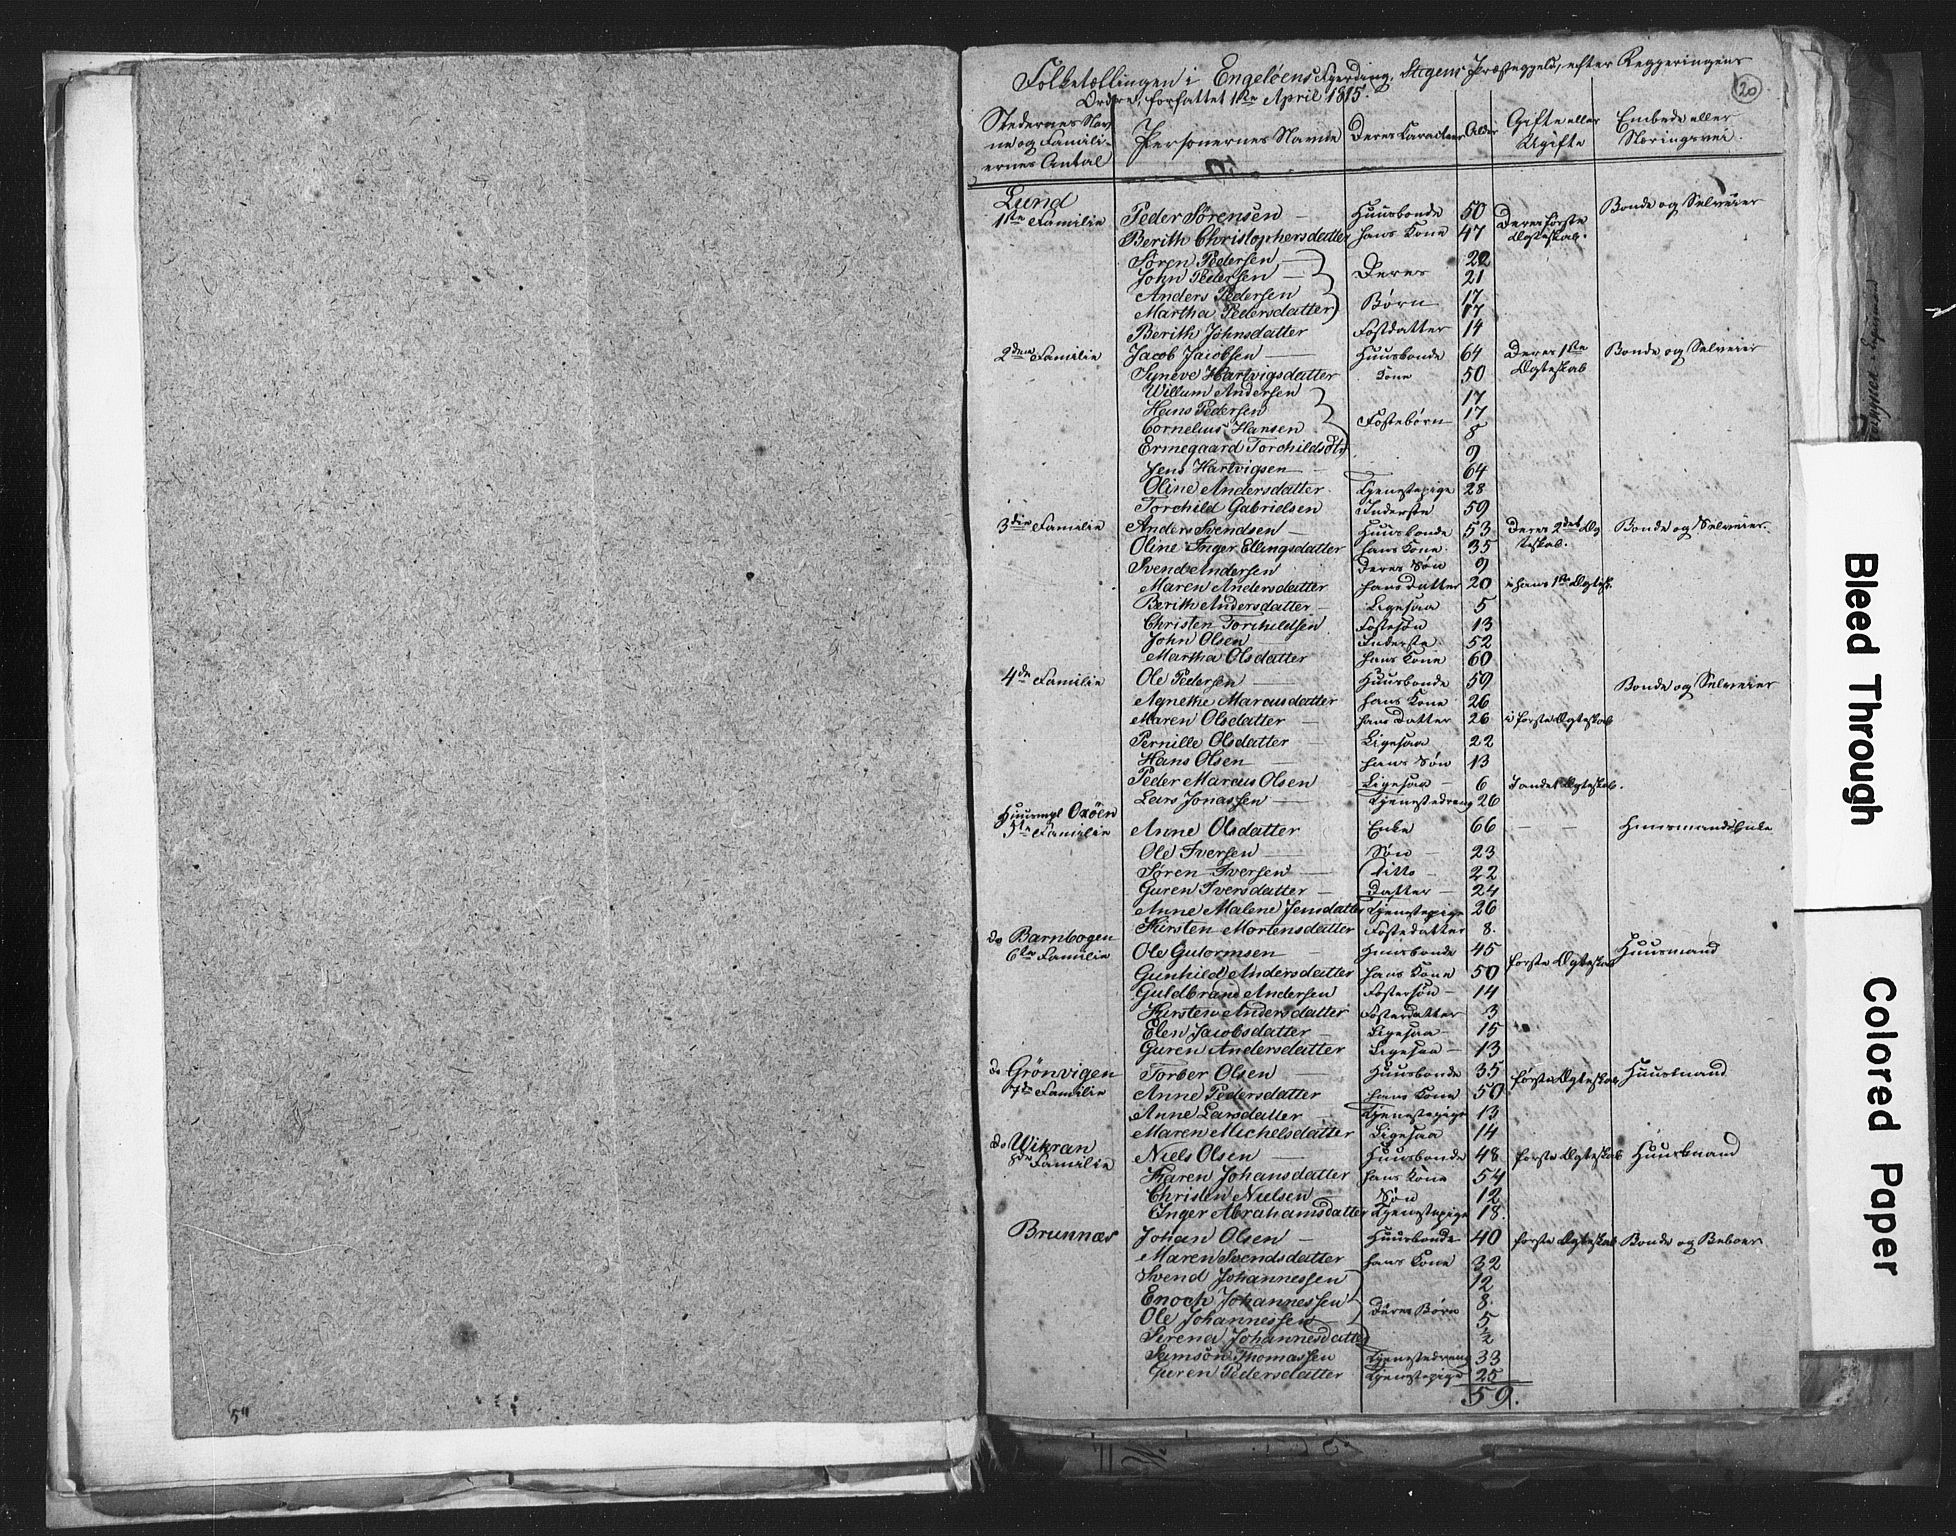 Folketællingen i Engelöens Fjerding, Stegens Præstegjeld, efter Regjeringens
Ordre, forfattet 1ste April 1815.
20
Stedernes Nav Personernes Navne Deres Caracteer Alder Gifte eller Embede eller
ne og Famili- Ugifte Næringsvei.
ernes Antal
Lund
1ste Familie Peder Sörensen — Huusbonde 50 Deres förste Bonde og Selveier
Berith Christophersdatter hans Kone 47 Ægteskab.
Sören Pedersen — 22
John Pedersen — Deres 21
Anders Pedersen 17
Martha Pedersdatter Börn 17
Berith Johnsdatter Fostdatter 14
2den Familie Jacob Jacobsen — Huusbonde 64 Deres 1ste Bonde og Selveier
Syneve Hartvigsdatter Kone 50 Ægteskab
Willum Andersen 17
Hans Pedersen 17
Cornelius Hansen Fostebörn 8
Ermegaard Torchildsdtr 9
Jens Hartvigsen 64
Oline Andersdatter Tjenestepige 28
Torchild Gabrielsen Inderste 59
3die Familie Anders Svendsen — Huusbonde 53 Deres 2det Æg Bonde og Selveier.
Oline Inger Ellingsdatter hans Kone 35 teskab.
Svend Andersen Deres Sön 9
Maren Andersdatter hans datter 20 i hans 1ste Ægtesk.
Berith Andersdatter — Ligesaa 5
Christen Torchildsen Fostesön 13
John Olsen Inderste 52
Martha Olsdatter hans Kone 60
4de Familie Ole Pedersen — Huusbonde 59 Bonde og Selveier
Agnethe Marcusdatter hans Kone 26
Maren Olsdatter — hans Datter 26 i förste Ægteskab
Pernille Olsdatter — Ligesaa 22
Hans Olsen — hans Sön 13
Peder Marcus Olsen Ligesaa — 6 I andet Ægteskab.
Lars Jonassen — Tjenestedreng 26
Huusmpl Oxöen
5te Familie Anne Olsdatter Enke 66 — — Huusmands Enke
Ole Iversen — Sön — 23
Sören Iversen — Ditto — 22
Guren Iversdatter — Datter — 24
Anne Malene Jensdatter Tjenestepige 26
Kirsten Mortensdatter Fostedatter 8.
do Barnbogen
6te Familie Ole Gutormsen — Huusbonde 45 förste Ægteskab Huusmand
Gunhild Andersdatter hans Kone 50
Guldbrand Andersen Fostersön — 14
Kirsten Andersdatter Fosterdatter 3
Elen Jacobsdatter — Ligesaa — 15
Guren Andersdatter Ligesaa — 13
do Grönvigen Torber Olsen — Huusbonde 35 förste Ægteskab Huusmand
7de Familie Anne Pedersdatter hans Kone 50
Anne Larsdatter — Tjenestepige 13
Maren Michelsdatter Ligesaa 14
do Wikran Niels Olsen — Huusbonde 48 förste Ægteskab Huusmand
8de Familie
Karen Johansdatter hans Kone 54
Christen Nielsen — Sön 12
Inger Abrahamsdatter Tjenestepige 18.
Brunnæs Johan Olsen — Huusbonde 40 förste Ægteskab Bonde og Beboer
Maren Svendsdatter hans Kone 32
Svend Johannessen 12
Enoch Johannessen 8.
Ole Johannessen Deres Börn 5
Serena Johannesdatter ½
Samsön Thomassen Tjenestedreng 33
Guren Pedersdatter Tjenestepige 25
59.
Bleed Through
Colored Paper